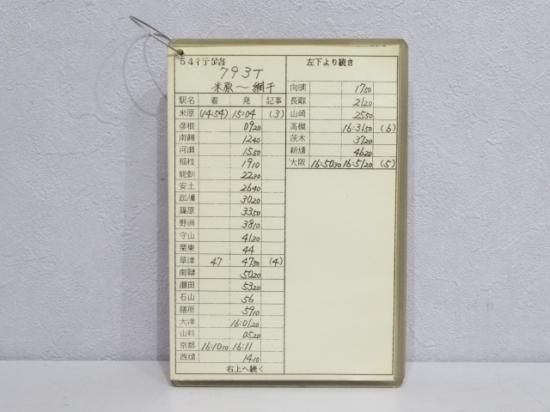 793T
米原～網干
駅名 着 発 記事
米原 (14:54) 15:04 (3)
彦根 0920
南彦根 1240
河瀬 1550
稲枝 1910
能登川 2230
安土 2640
近江八幡 3020
篠原 3350
野洲 3810
守山 4120
栗東 44
草津 47 4730 (4)
南草津 5020
瀬田 5320
石山 56
膳所 5910
大津 16:0120
山科 0520
京都 16:1010 16:11
西大路 1410
右上へ続く
左下より続き
向日町 1750
長岡京 2120
山崎 2550
高槻 16:3150 (6)
茨木 3720
新大阪 4620
大阪 16:5030 16:5120 (5)